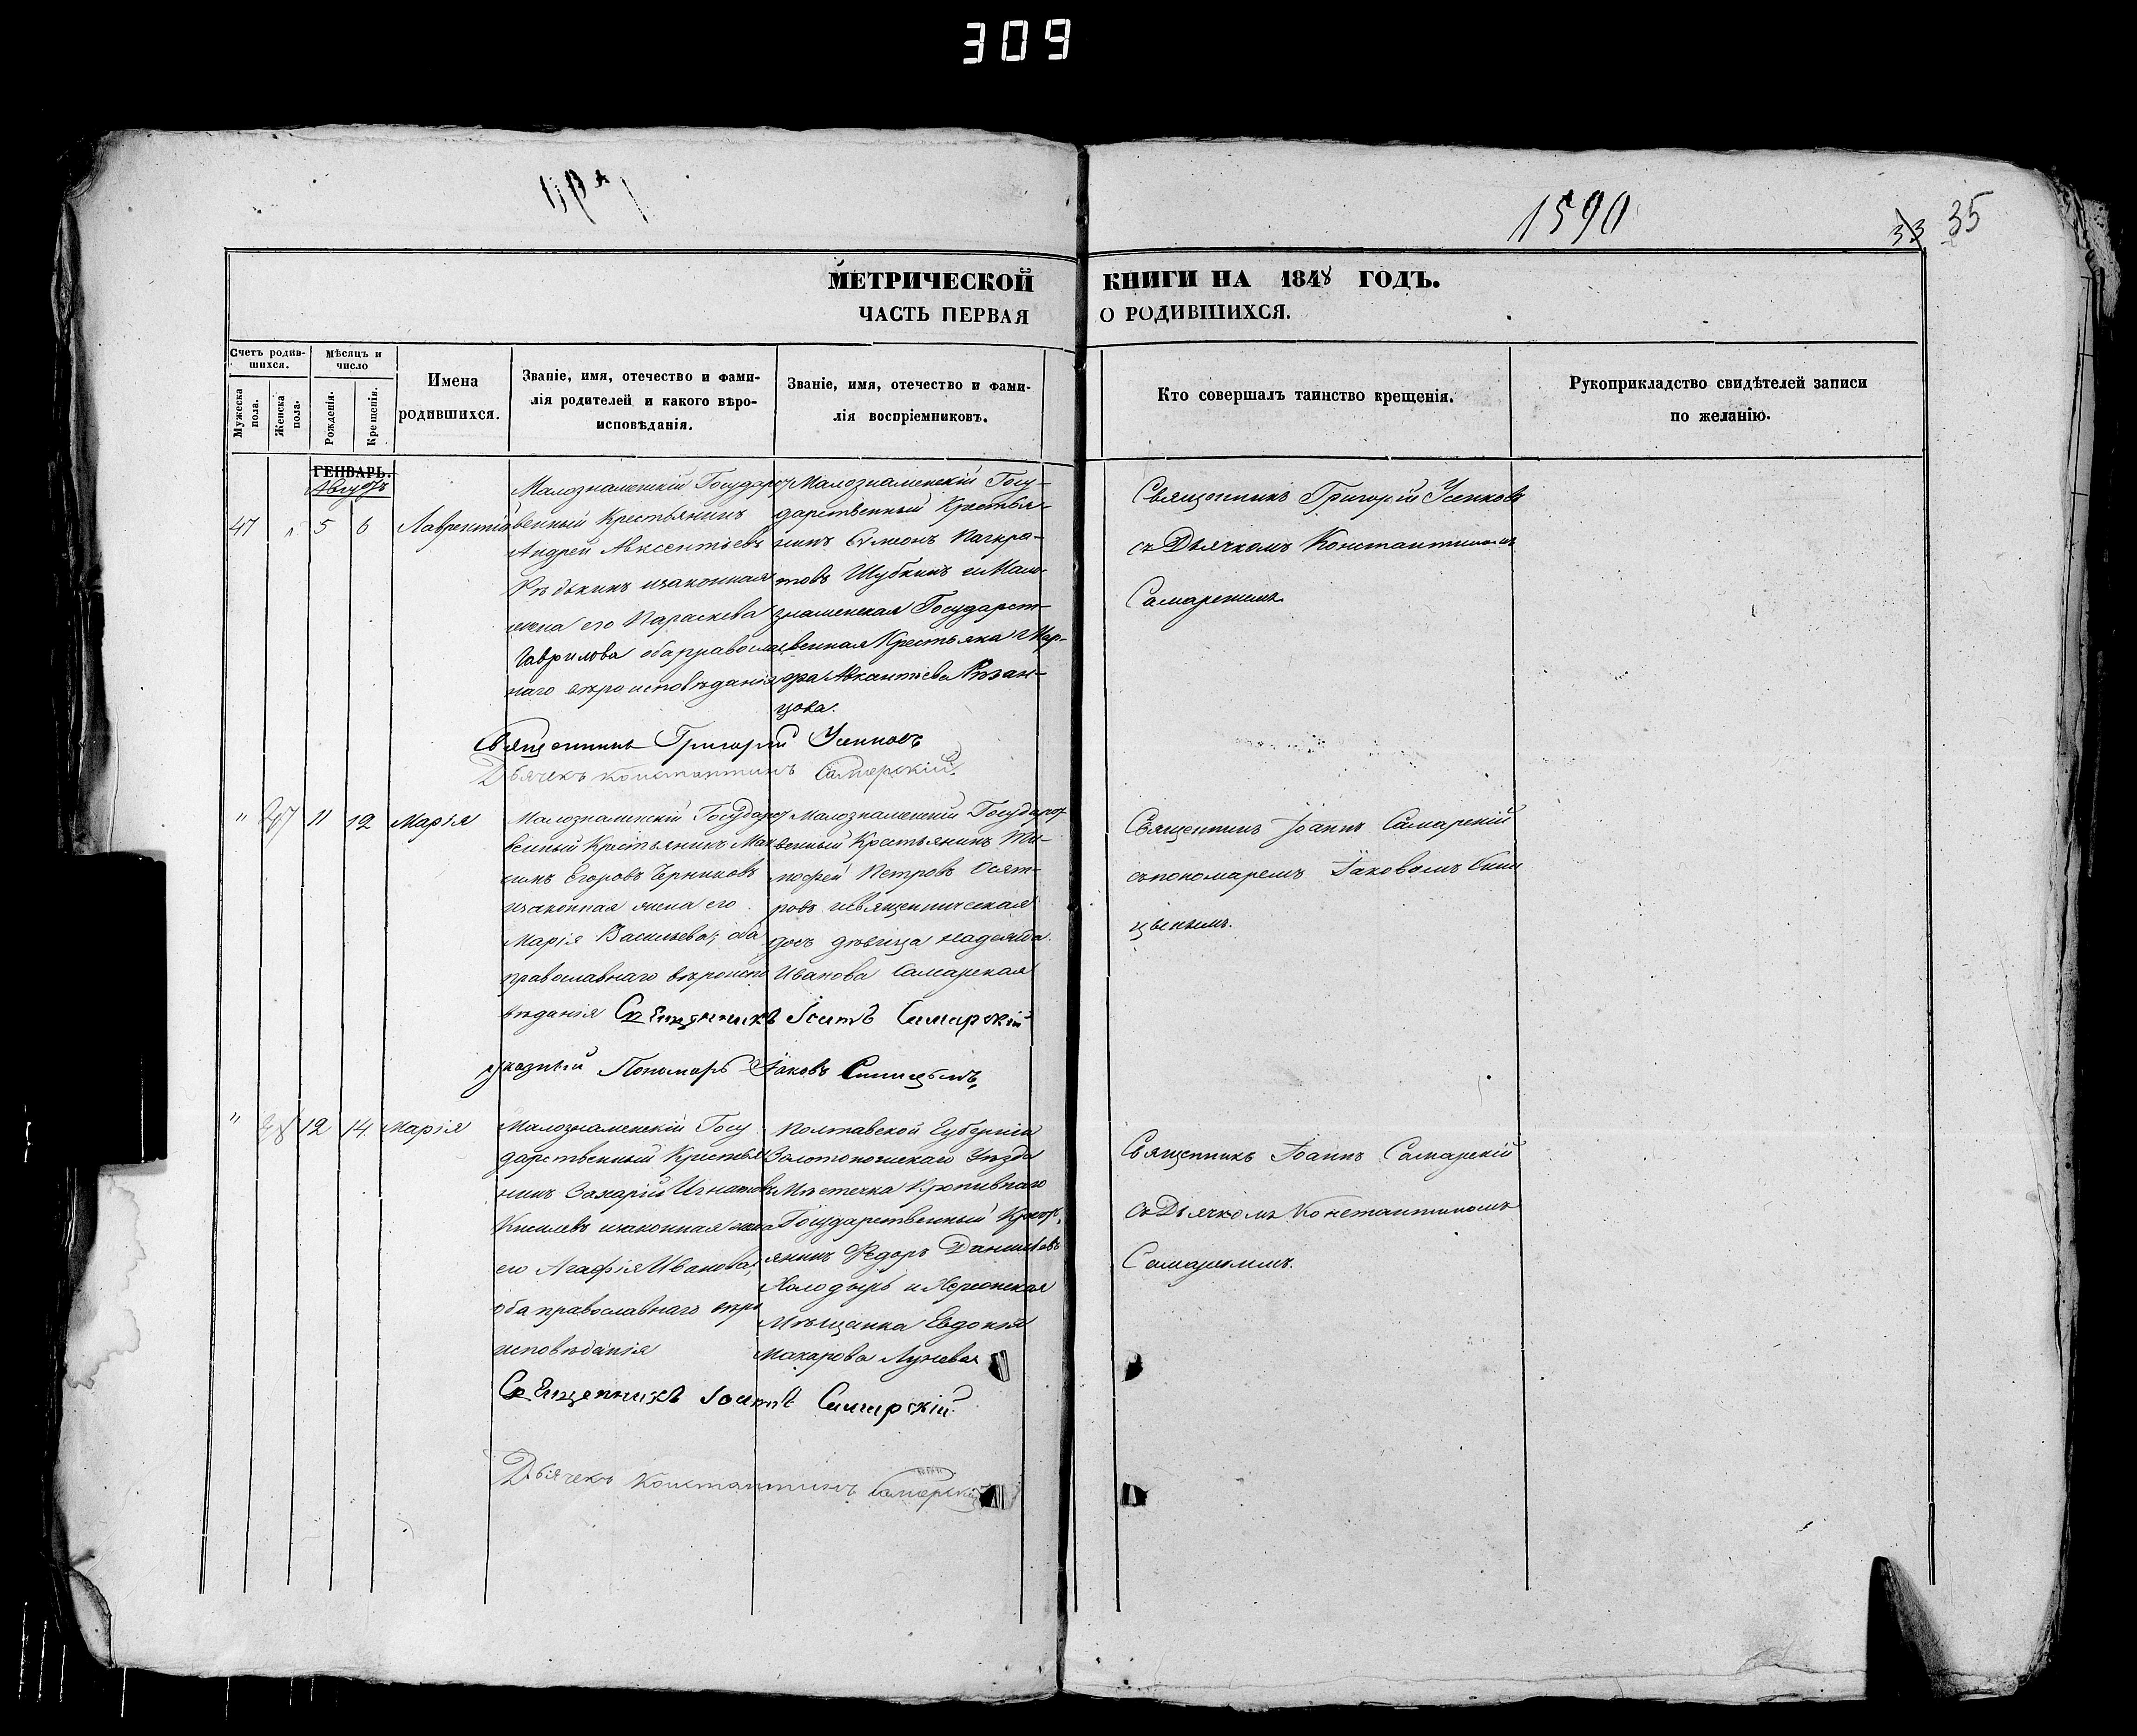 309
1590
33 35
МЕТРИЧЕСКОЙ КНИГИ НА 1848 ГОДЪ.
ЧАСТЬ ПЕРВАЯ О РОДИВШИХСЯ.
Счетъ родив-
шихся.
Мужеска пола.
Женска пола.
Мѣсяцъ и
число
Рожденія.
Крещенія.
Имена
родившихся.
Званіе, имя, отечество и фами-
лія родителей и какого вѣро-
исповѣданія.
Званіе, имя, отечество и фами-
лія воспріемниковъ.
Кто совершалъ таинство крещенія.
Рукоприкладство свидѣтелей записи
по желанію.
ГЕНВАРЬ.
Августъ
47 " 5 6 Лаврентій
Малознаменскій Государст
венный Крестьянинъ
Андрей Авксентіевъ
изаконная
жена его Параскева
Гаврилова оба православ
наго вѣроисповѣданія
Малознаменскій Госу-
дарственный Крестья-
нинъ Симеонъ Панкра-
товъ Шубкинъ и Мало-
знаменская Государст-
венная Крестьянка Мар-
фа Авксентіева Рязан-
цова.
Священникъ Григорій Усенковъ
съ Дьячкомъ Константиномъ
Самарскимъ.
Священникъ Григорій Усенковъ
Дьячекъ Константинъ Самарскій.
" 47 11 12 Марія
Малознаменскій Государст
венный Крестьянинъ Мак
симъ Егоровъ Черниковъ
изаконная жена его
Марія Васильева, оба
православнаго вѣроиспо
вѣданія
Малознаменскій Государст
венный Крестьянинъ Ти-
мофей Петровъ Осят-
ровъ исвященническая
дочь дѣвица Надежда
Иванова Самарская
Священникъ Іоаннъ Самарскій
съ пономаремъ Іаковомъ Сини
цынымъ.
Священникъ Іоаннъ Самарскій
указный Пономарь Іаковъ Синицынъ,
" 48 12 14. Марія
Малознаменскій Госу
дарственный Крестья
нинъ Захарій Игнатовъ
Киселевъ изаконная жена
его Агафія Иванова,
оба православнаго вѣро
исповѣданія
Полтавской Губерніи
Золотоношскаго Уѣзда
Мѣстечка Кропивнаго
Государственный Крест,
янинъ Ѳедоръ Даниловъ
Холодырь и Херсонская
Мѣщанка Евдокія
Макарова Лунева
Священникъ Іоаннъ Самарскій
съ Дьячкомъ Константиномъ
Самарскимъ.
Священникъ Іоаннъ Самарскій
Дьячекъ Константинъ Самарскій